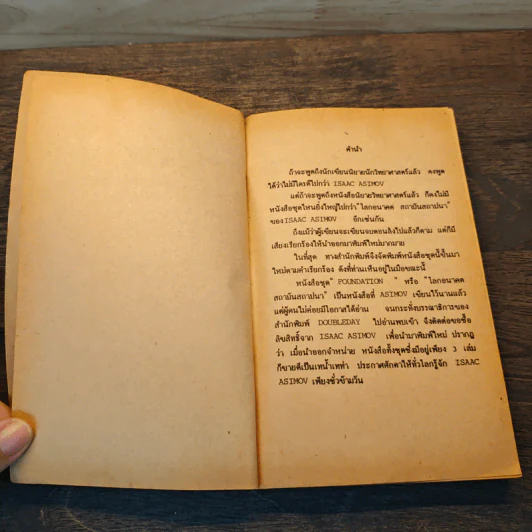 คำนำ
ถ้าจะพูดถึงนักเขียนนิยายนักวิทยาศาสตร์แล้ว คงพูด
ได้ว่าไม่มีใครดีไปกว่า ISAAC ASIMOV
แต่ถ้าจะพูดถึงหนังสือนิยายวิทยาศาสตร์แล้ว ก็คงไม่มี
หนังสือชุดไหนยิ่งใหญ่ไปกว่า "โลกอนาคต สถาบันสถาปนา"
ของ ISAAC ASIMOV อีกเช่นกัน
ถึงแม้ว่าผู้เขียนจะเขียนจบตอนลงไปแล้วก็ตาม แต่ก็มี
เสียงเรียกร้องให้นำออกมาพิมพ์ใหม่มากมาย
ในที่สุด ทางสำนักพิมพ์จึงจัดพิมพ์หนังสือชุดนี้ขึ้นมา
ใหม่ตามคำเรียกร้อง ดังที่ท่านเห็นอยู่ในมือขณะนี้
หนังสือชุด" FOUNDATION " หรือ "โลกอนาคต
สถาบันสถาปนา" เป็นหนังสือที่ ASIMOV เขียนไว้นานแล้ว
แต่ผู้คนไม่ค่อยมีโอกาสได้อ่าน จนกระทั่งบรรณาธิการของ
สำนักพิมพ์ DOUBLEDAY ไปอ่านพบเข้า จึงติดต่อขอซื้อ
ลิขสิทธิ์จาก ISAAC ASIMOV เพื่อนำมาพิมพ์ใหม่ ปรากฏ
ว่า เมื่อนำออกจำหน่าย หนังสือทั้งชุดซึ่งมีอยู่เพียง 3 เล่ม
ก็ขายดีเป็นเทน้ำเทท่า ประกาศศักดาให้ทั่วโลกรู้จัก ISAAC
ASIMOV เพียงชั่วข้ามวัน